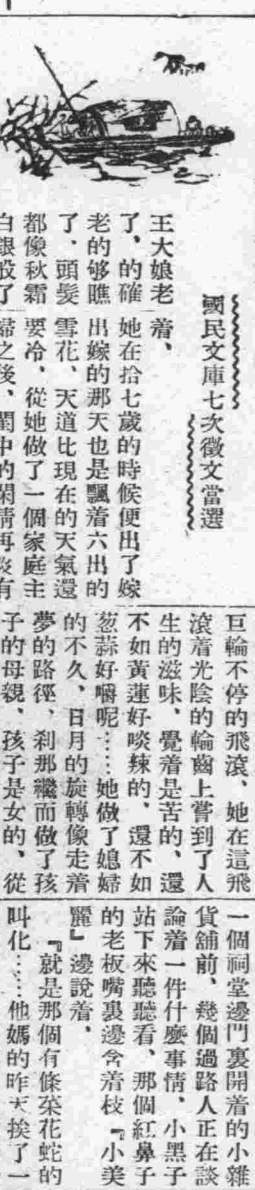 國民文庫七次徵文當選
王大娘老
了、的確
老的够瞧
了、頭髮
都像秋霜
白銀般了
着、
她在拾七歲的時候便出了嫁
出嫁的那天也是飄着六出的
雪花、天道比現在的天氣還
要冷、從她做了一個家庭主
婦之後、閨中的閑情再沒有
巨輪不停的飛滾、她在這飛
滾着光陰的輪齒上嘗到了人
生的滋味、覺着是苦的、還
不如黃蓮好啖辣的、還不如
葱蒜好嚼呢……她做了媳婦
的不久、日月的旋轉像走着
夢的路徑、刹那繼而做了孩
子的母親、孩子是女的、從
一個祠堂邊門裏開着的小雜
貨舖前、幾個過路人正在談
論着一件什麼事情、小黑子
站下來聽聽看、那個紅鼻子
的老板嘴裏邊含着枝『小美
麗』邊說着、
『就是那個有條菜花蛇的
叫化……他媽的昨天挨了一